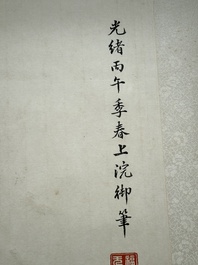 光緒丙午季春上浣御筆